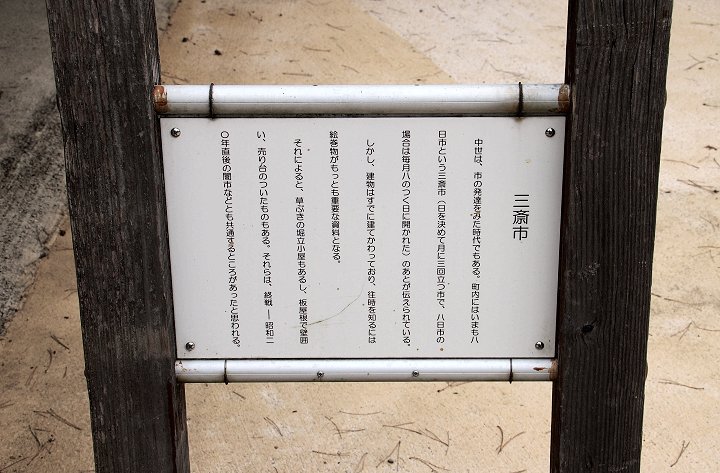 三斎市
中世は、市の発達をみた時代でもある。町内にはいまも八
日市という三斎市（日を決めて月に三回立つ市で、八日市の
場合は毎月八のつく日に開かれた）のあとが伝えられている。
しかし、建物はすでに建てかわっており、往時を知るには
絵巻物がもっとも重要な資料となる。
それによると、草ぶきの堀立小屋もあるし、板屋根で壁囲
い、売り台のついたものもある。それらは、終戦 ― 昭和二
〇年直後の闇市などとも共通するところがあったと思われる。